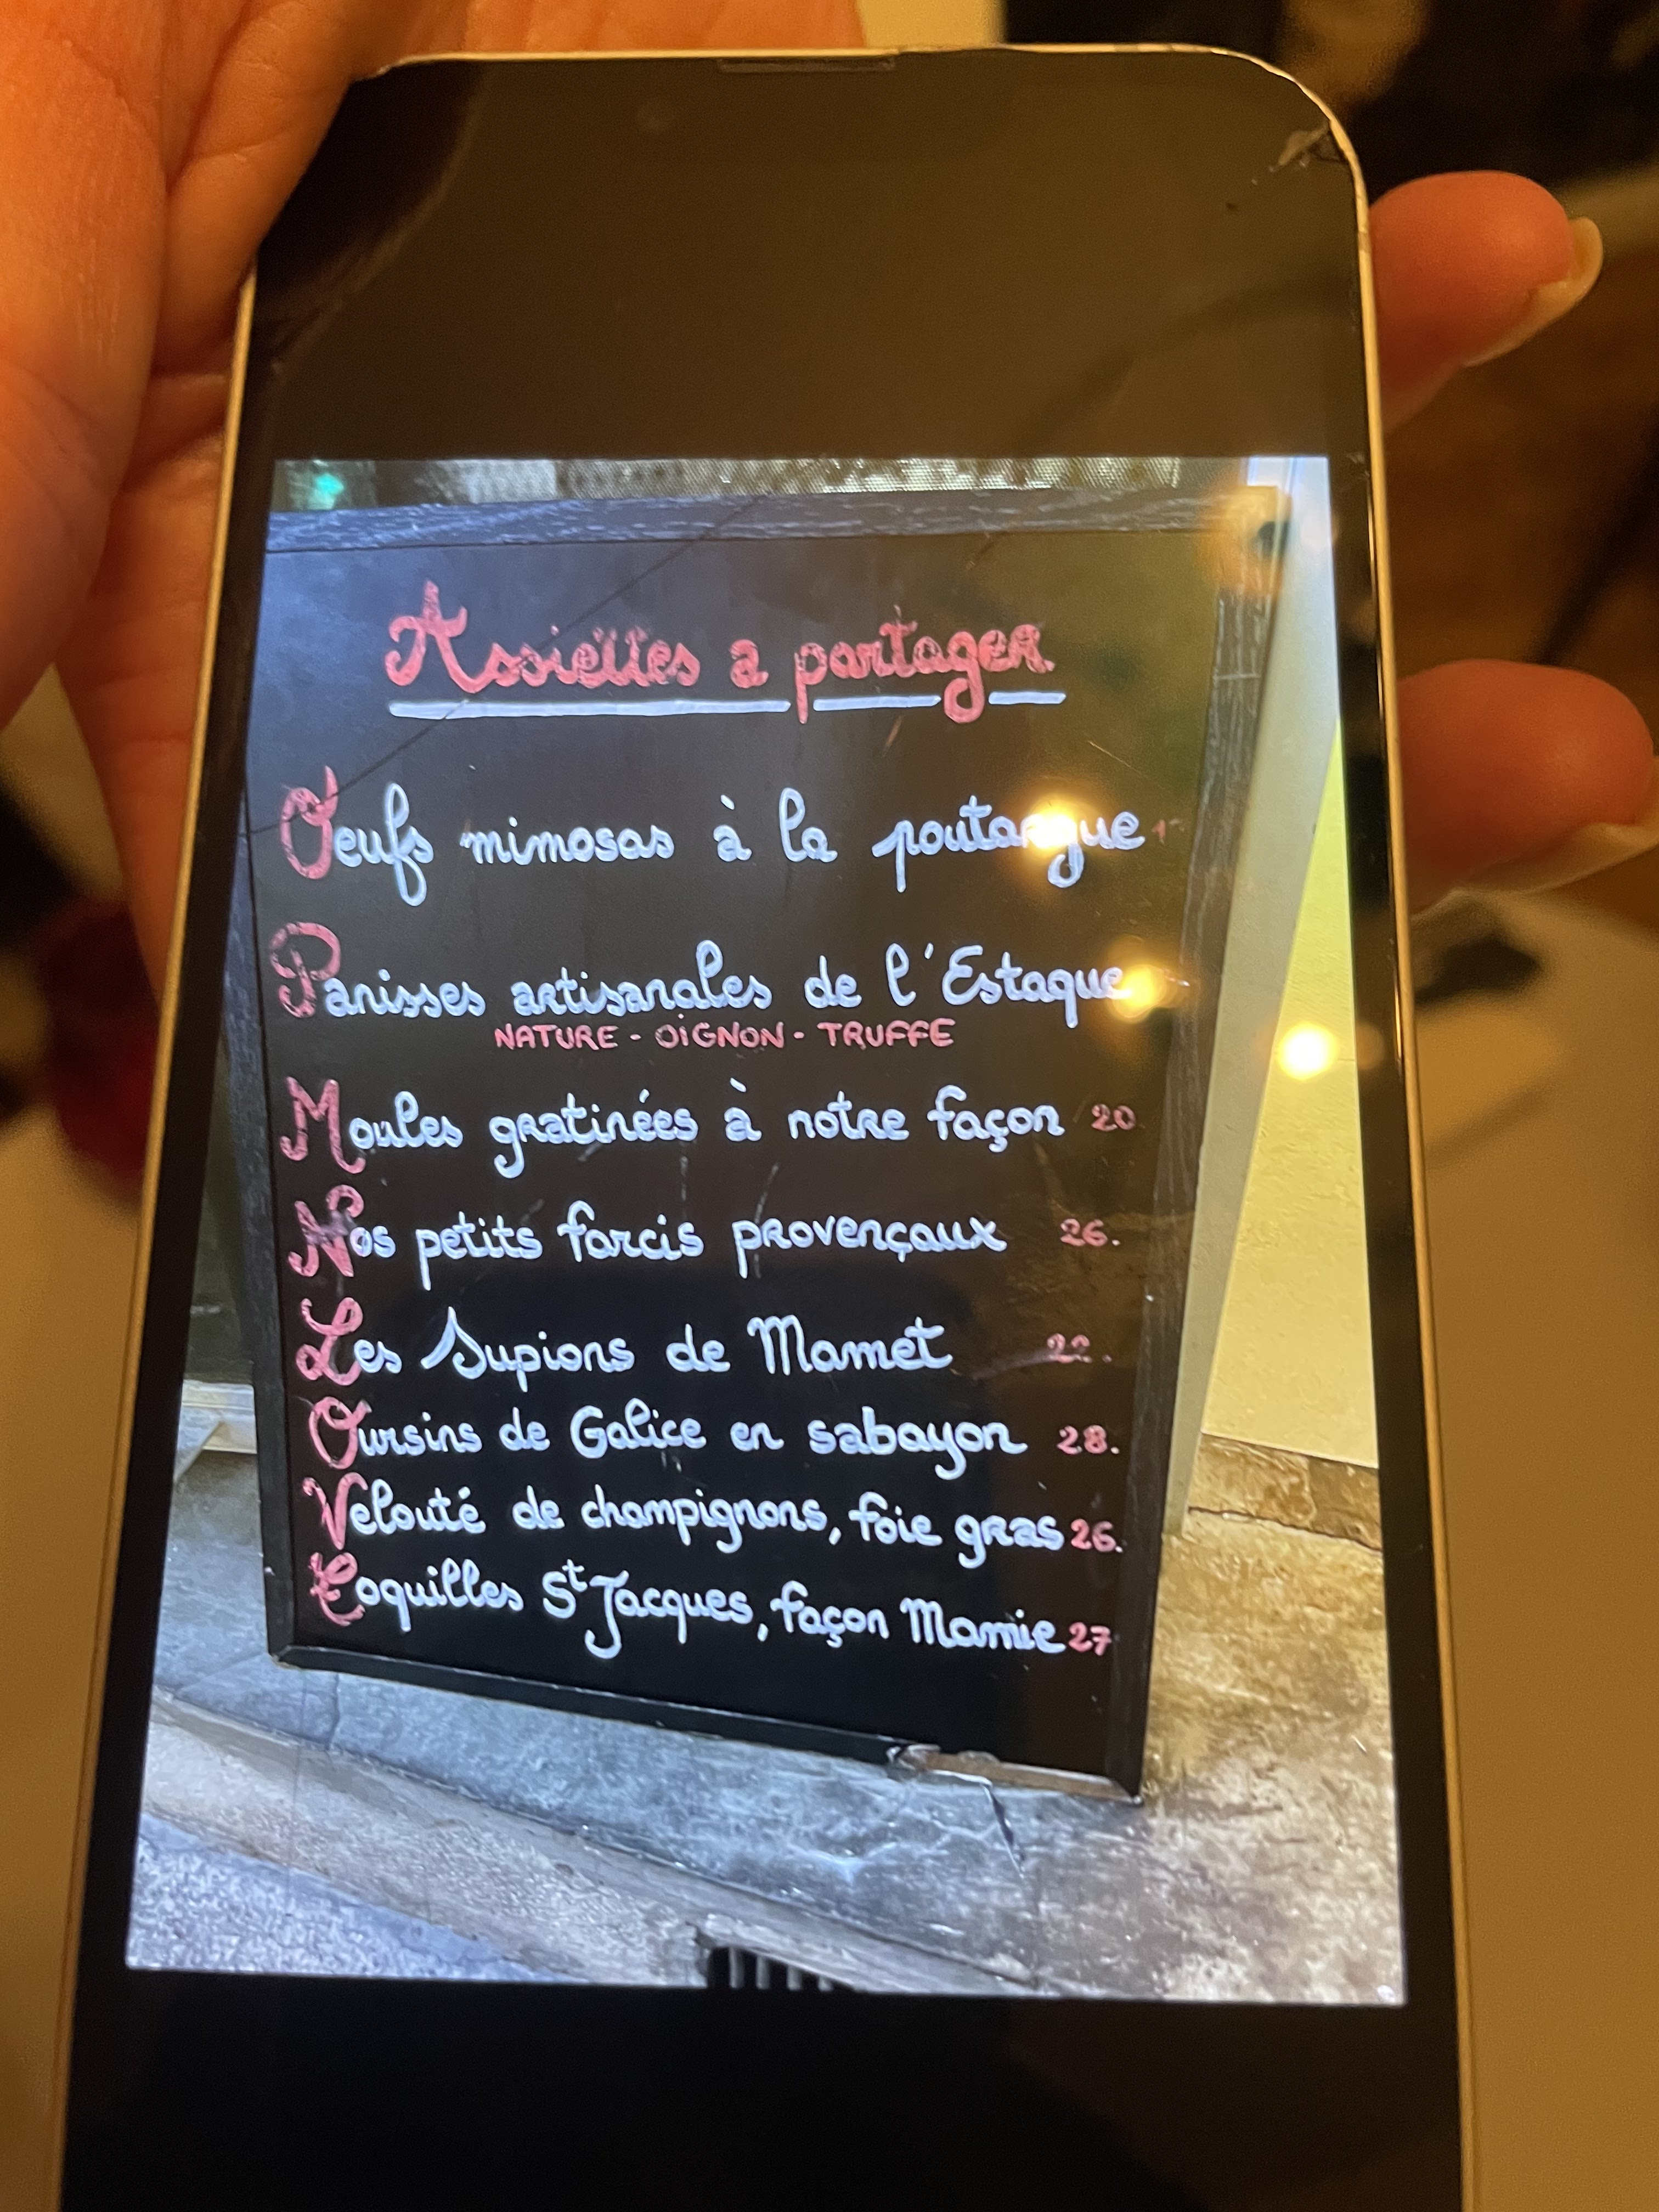 Assiettes a partager
Oeufs mimosas à la poutargue
Panisses artisanales de l'Estaque
NATURE - OiGNON - TRUFFE
Moules gratinées à notre façon 20
Nos petits farcis provençaux 26.
Les Supions de Mamet 22.
Oursins de Galice en sabayon 28.
Velouté de champignons, foie gras 26.
Coquilles St Jacques, façon Mamie 27